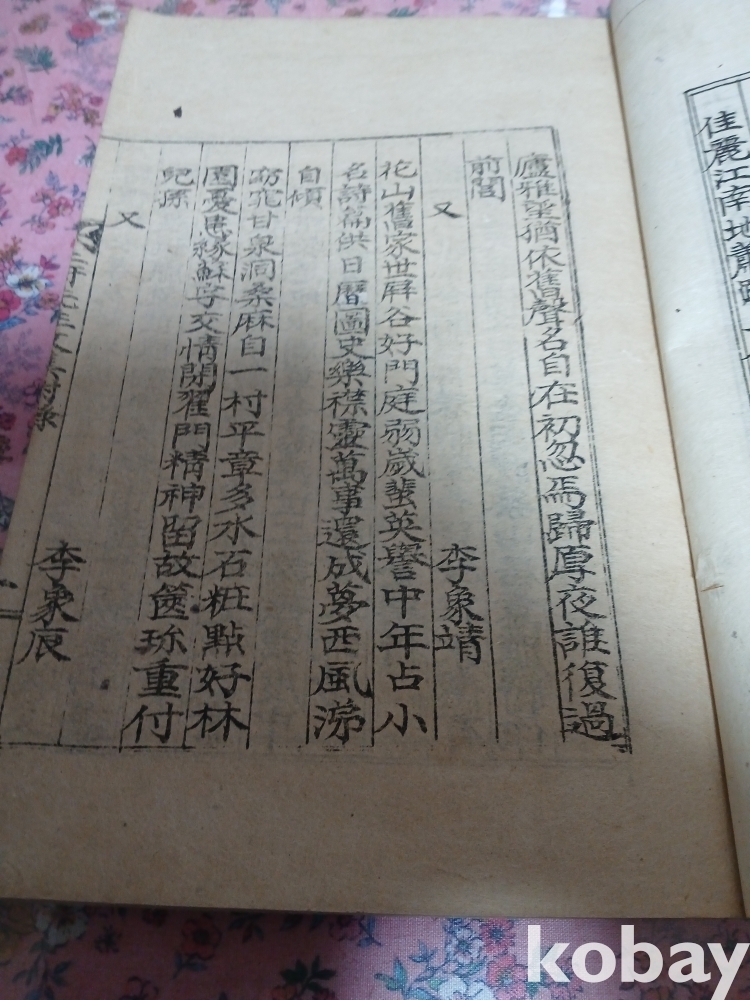 佳麗江南地
廬雅望猶依舊聲名自在初忽焉歸厚夜誰復過
前閭
又 李象靖
花山舊家世屛谷好門庭弱歲蜚英譽中年占小
名詩篇供日曆圖史樂襟靈萬事還成夢西風涕
自傾
窈窕甘泉洞桑麻自一村平章多水石粧點好林
園愛惠緣蘇字交情閱翟門精神留故篋珍重付
兒孫
又 李象辰
kobay